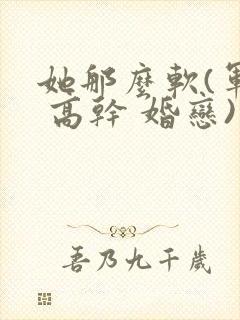 她那麼軟(軍
高幹 婚戀)
吾乃九千歲